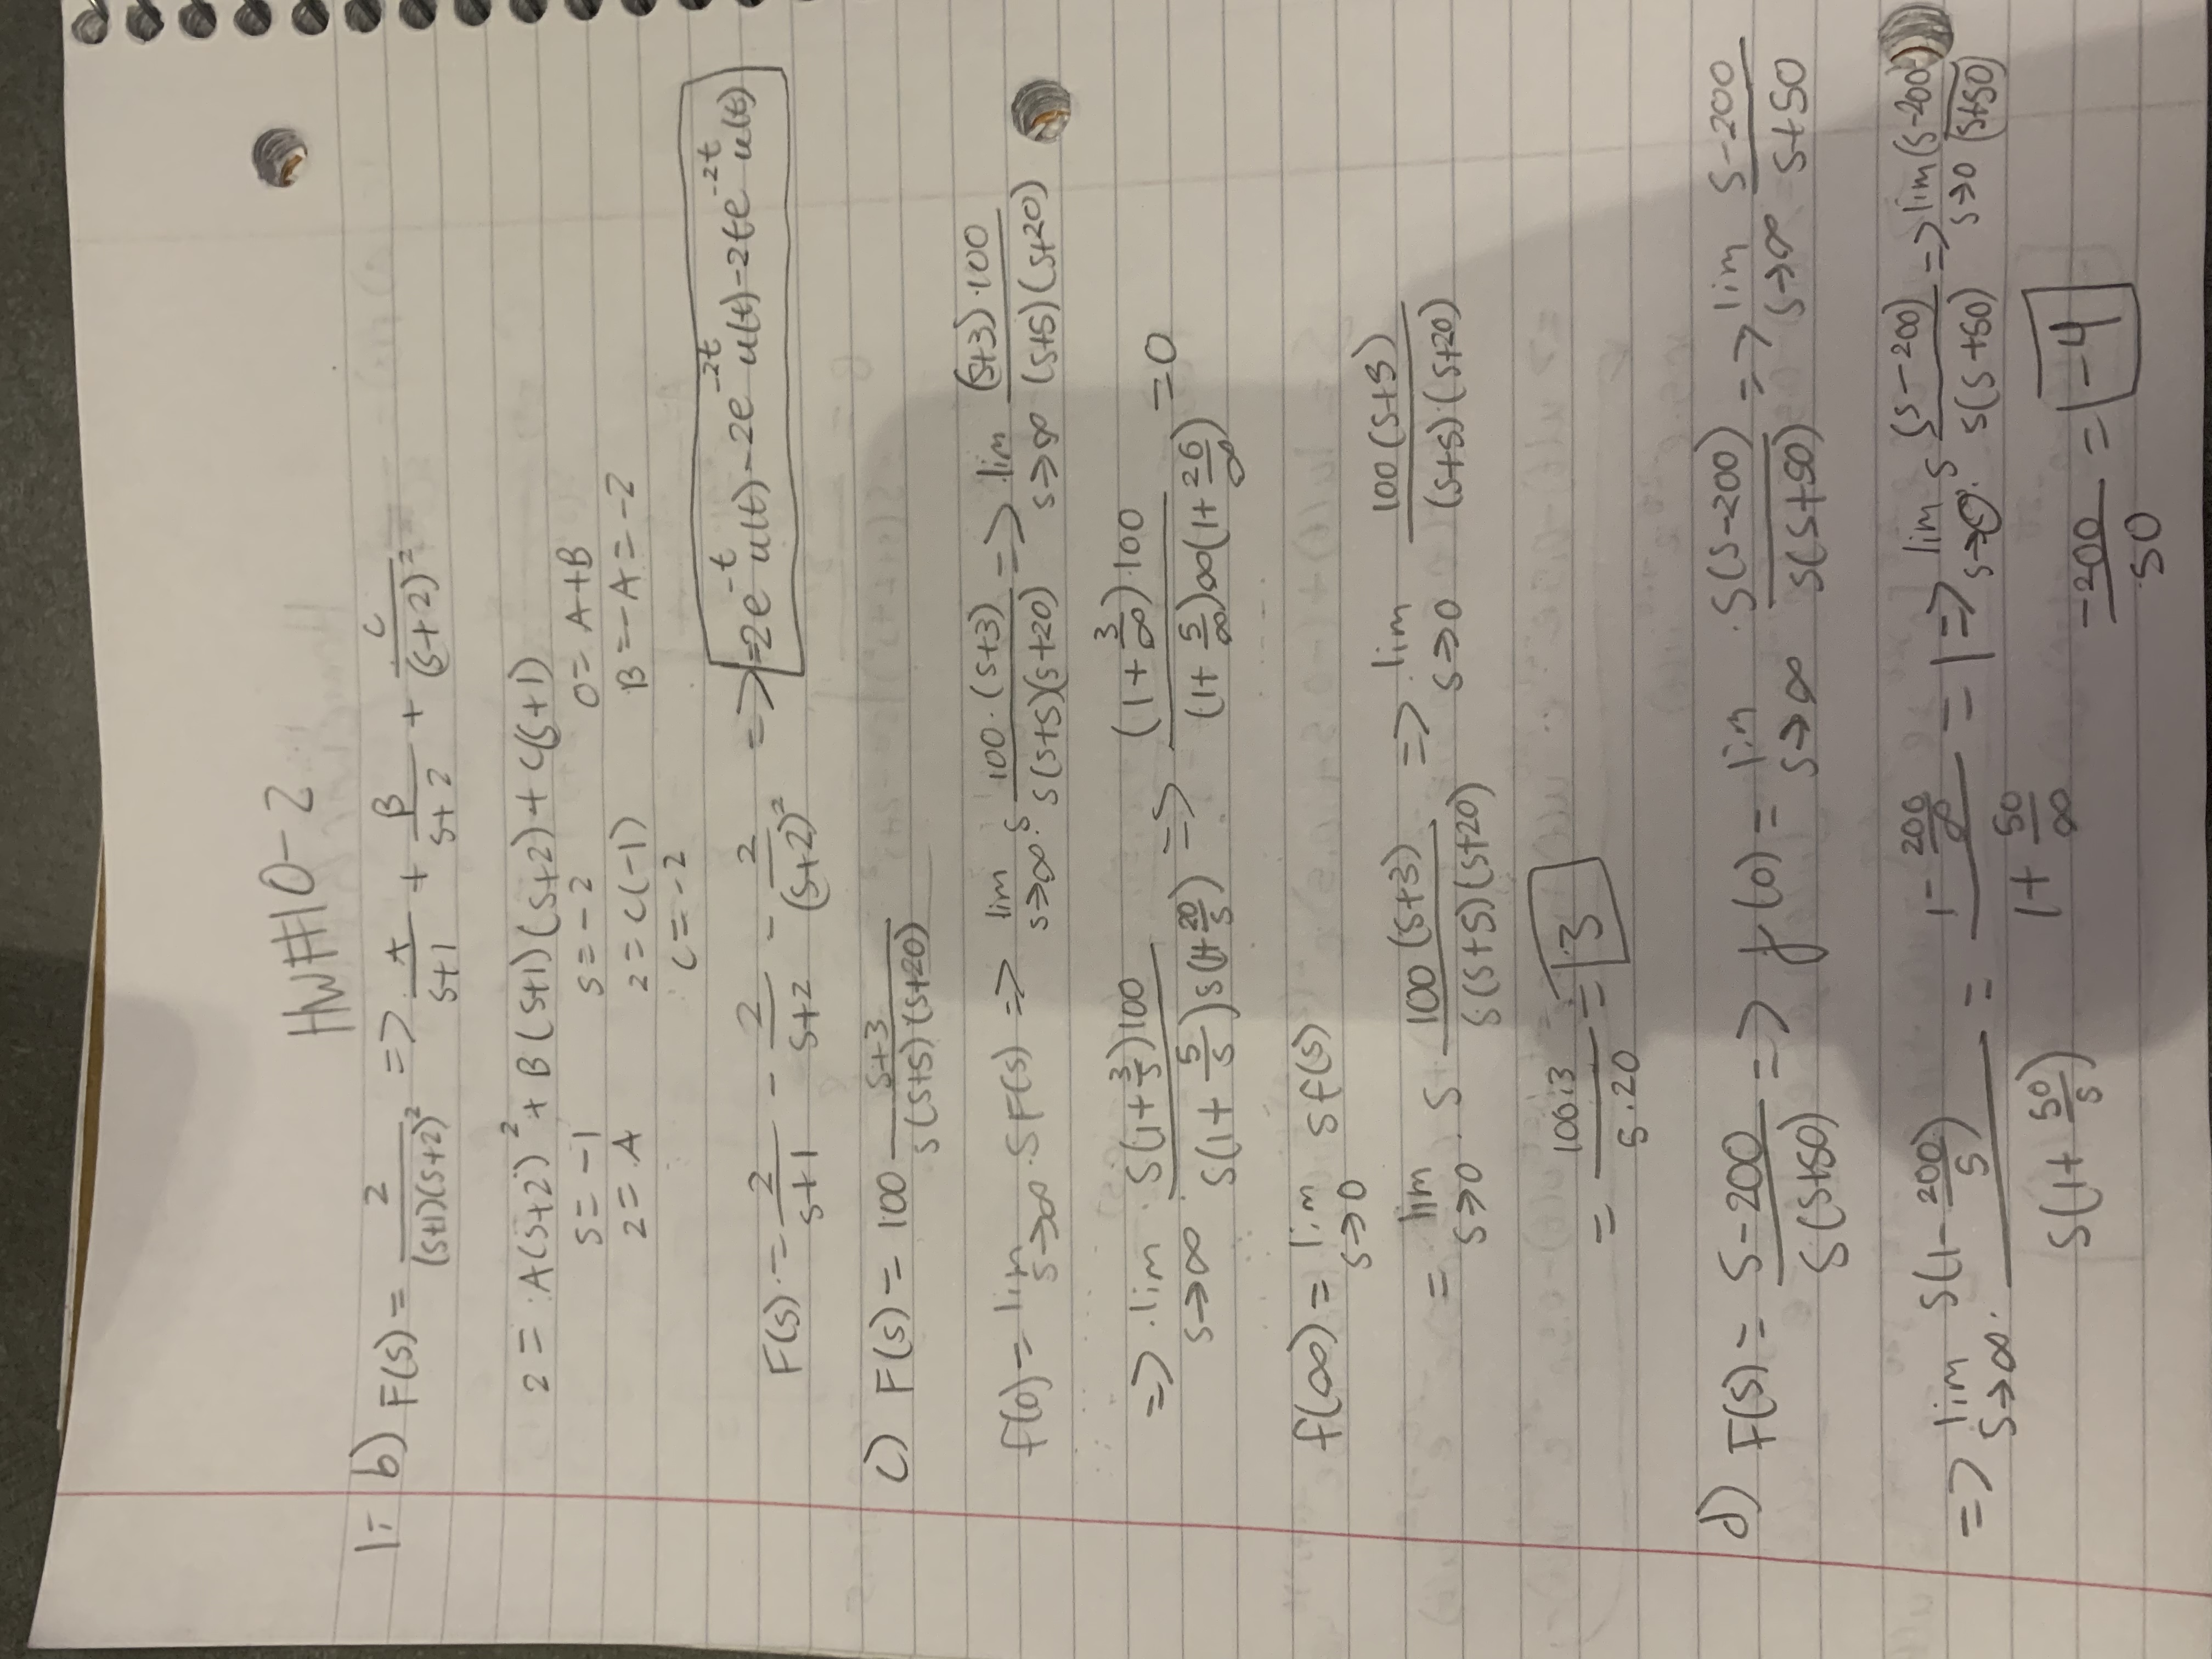 HW#10-2
1- b) F(s) = 2/((s+1)(s+2)²) => A/(s+1) + B/(s+2) + C/(s+2)²
2 = A(s+2)² + B(s+1)(s+2) + C(s+1)
s = -1 s = -2 0 = A+B
2 = A 2 = C(-1) B = -A = -2
C = -2
F(s) = 2/(s+1) - 2/(s+2) - 2/(s+2)² => =2e^-t u(t) - 2e^-2t u(t) - 2te^-2t u(t)
c) F(s) = 100 (s+3)/(s(s+5)(s+20))
f(0) = lim s→∞ SF(s) => lim s→∞ s 100·(s+3)/(s(s+5)(s+20)) => lim s→∞ (s+3)·100/((s+5)(s+20))
=> lim s→∞ s(1+3/s)100/(s(1+5/s)s(1+20/s)) => (1+3/∞)·100/((1+5/∞)∞(1+20/∞)) = 0
f(∞) = lim s→0 sf(s)
= lim s→0 · s 100(s+3)/(s(s+5)(s+20)) => lim s→0 100(s+3)/((s+5)(s+20))
= 100·3/(5·20) = 3
d) F(s) = (s-200)/(s(s+50)) => f(0) = lim s→∞ s(s-200)/(s(s+50)) => lim s→∞ (s-200)/(s+50)
=> lim s→∞ s(1-200/s)/(s(1+50/s)) = (1-200/∞)/(1+50/∞) = 1 => lim s→0 s (s-200)/(s(s+50)) => lim s→0 (s-200)/(s+50)
-200/50 = -4